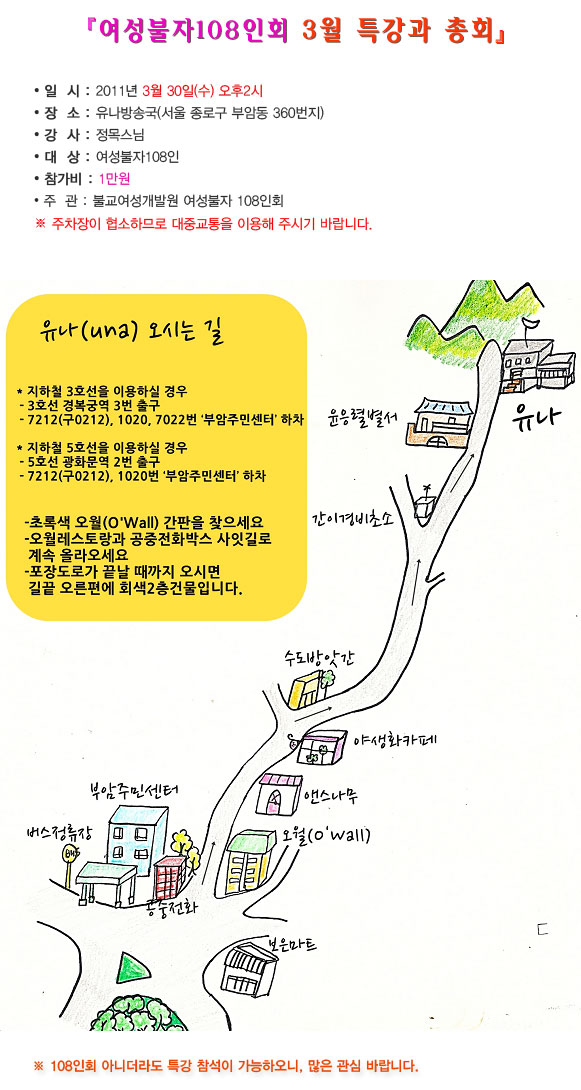 『여성불자108인회 3월 특강과 총회』
• 일 시 : 2011년 3월 30일(수) 오후2시
• 장 소 : 유나방송국(서울 종로구 부암동 360번지)
• 강 사 : 정목스님
• 대 상 : 여성불자108인
• 참가비 : 1만원
• 주 관 : 불교여성개발원 여성불자 108인회
※ 주차장이 협소하므로 대중교통을 이용해 주시기 바랍니다.
유나(una) 오시는 길
* 지하철 3호선을 이용하실 경우
- 3호선 경복궁역 3번 출구
- 7212(구0212), 1020, 7022번 '부암주민센터' 하차
* 지하철 5호선을 이용하실 경우
- 5호선 광화문역 2번 출구
- 7212(구0212), 1020번 '부암주민센터' 하차
-초록색 오월(O'Wall) 간판을 찾으세요
-오월레스토랑과 공중전화박스 사잇길로
계속 올라오세요
-포장도로가 끝날 때까지 오시면
길끝 오른편에 회색2층건물입니다.
유나
윤응렬별서
간이경비초소
수도방앗간
야생화카페
앤스나무
부암주민센터
버스정류장
BUS
오월(O'Wall)
공중전화
보은마트
※ 108인회 아니더라도 특강 참석이 가능하오니, 많은 관심 바랍니다.